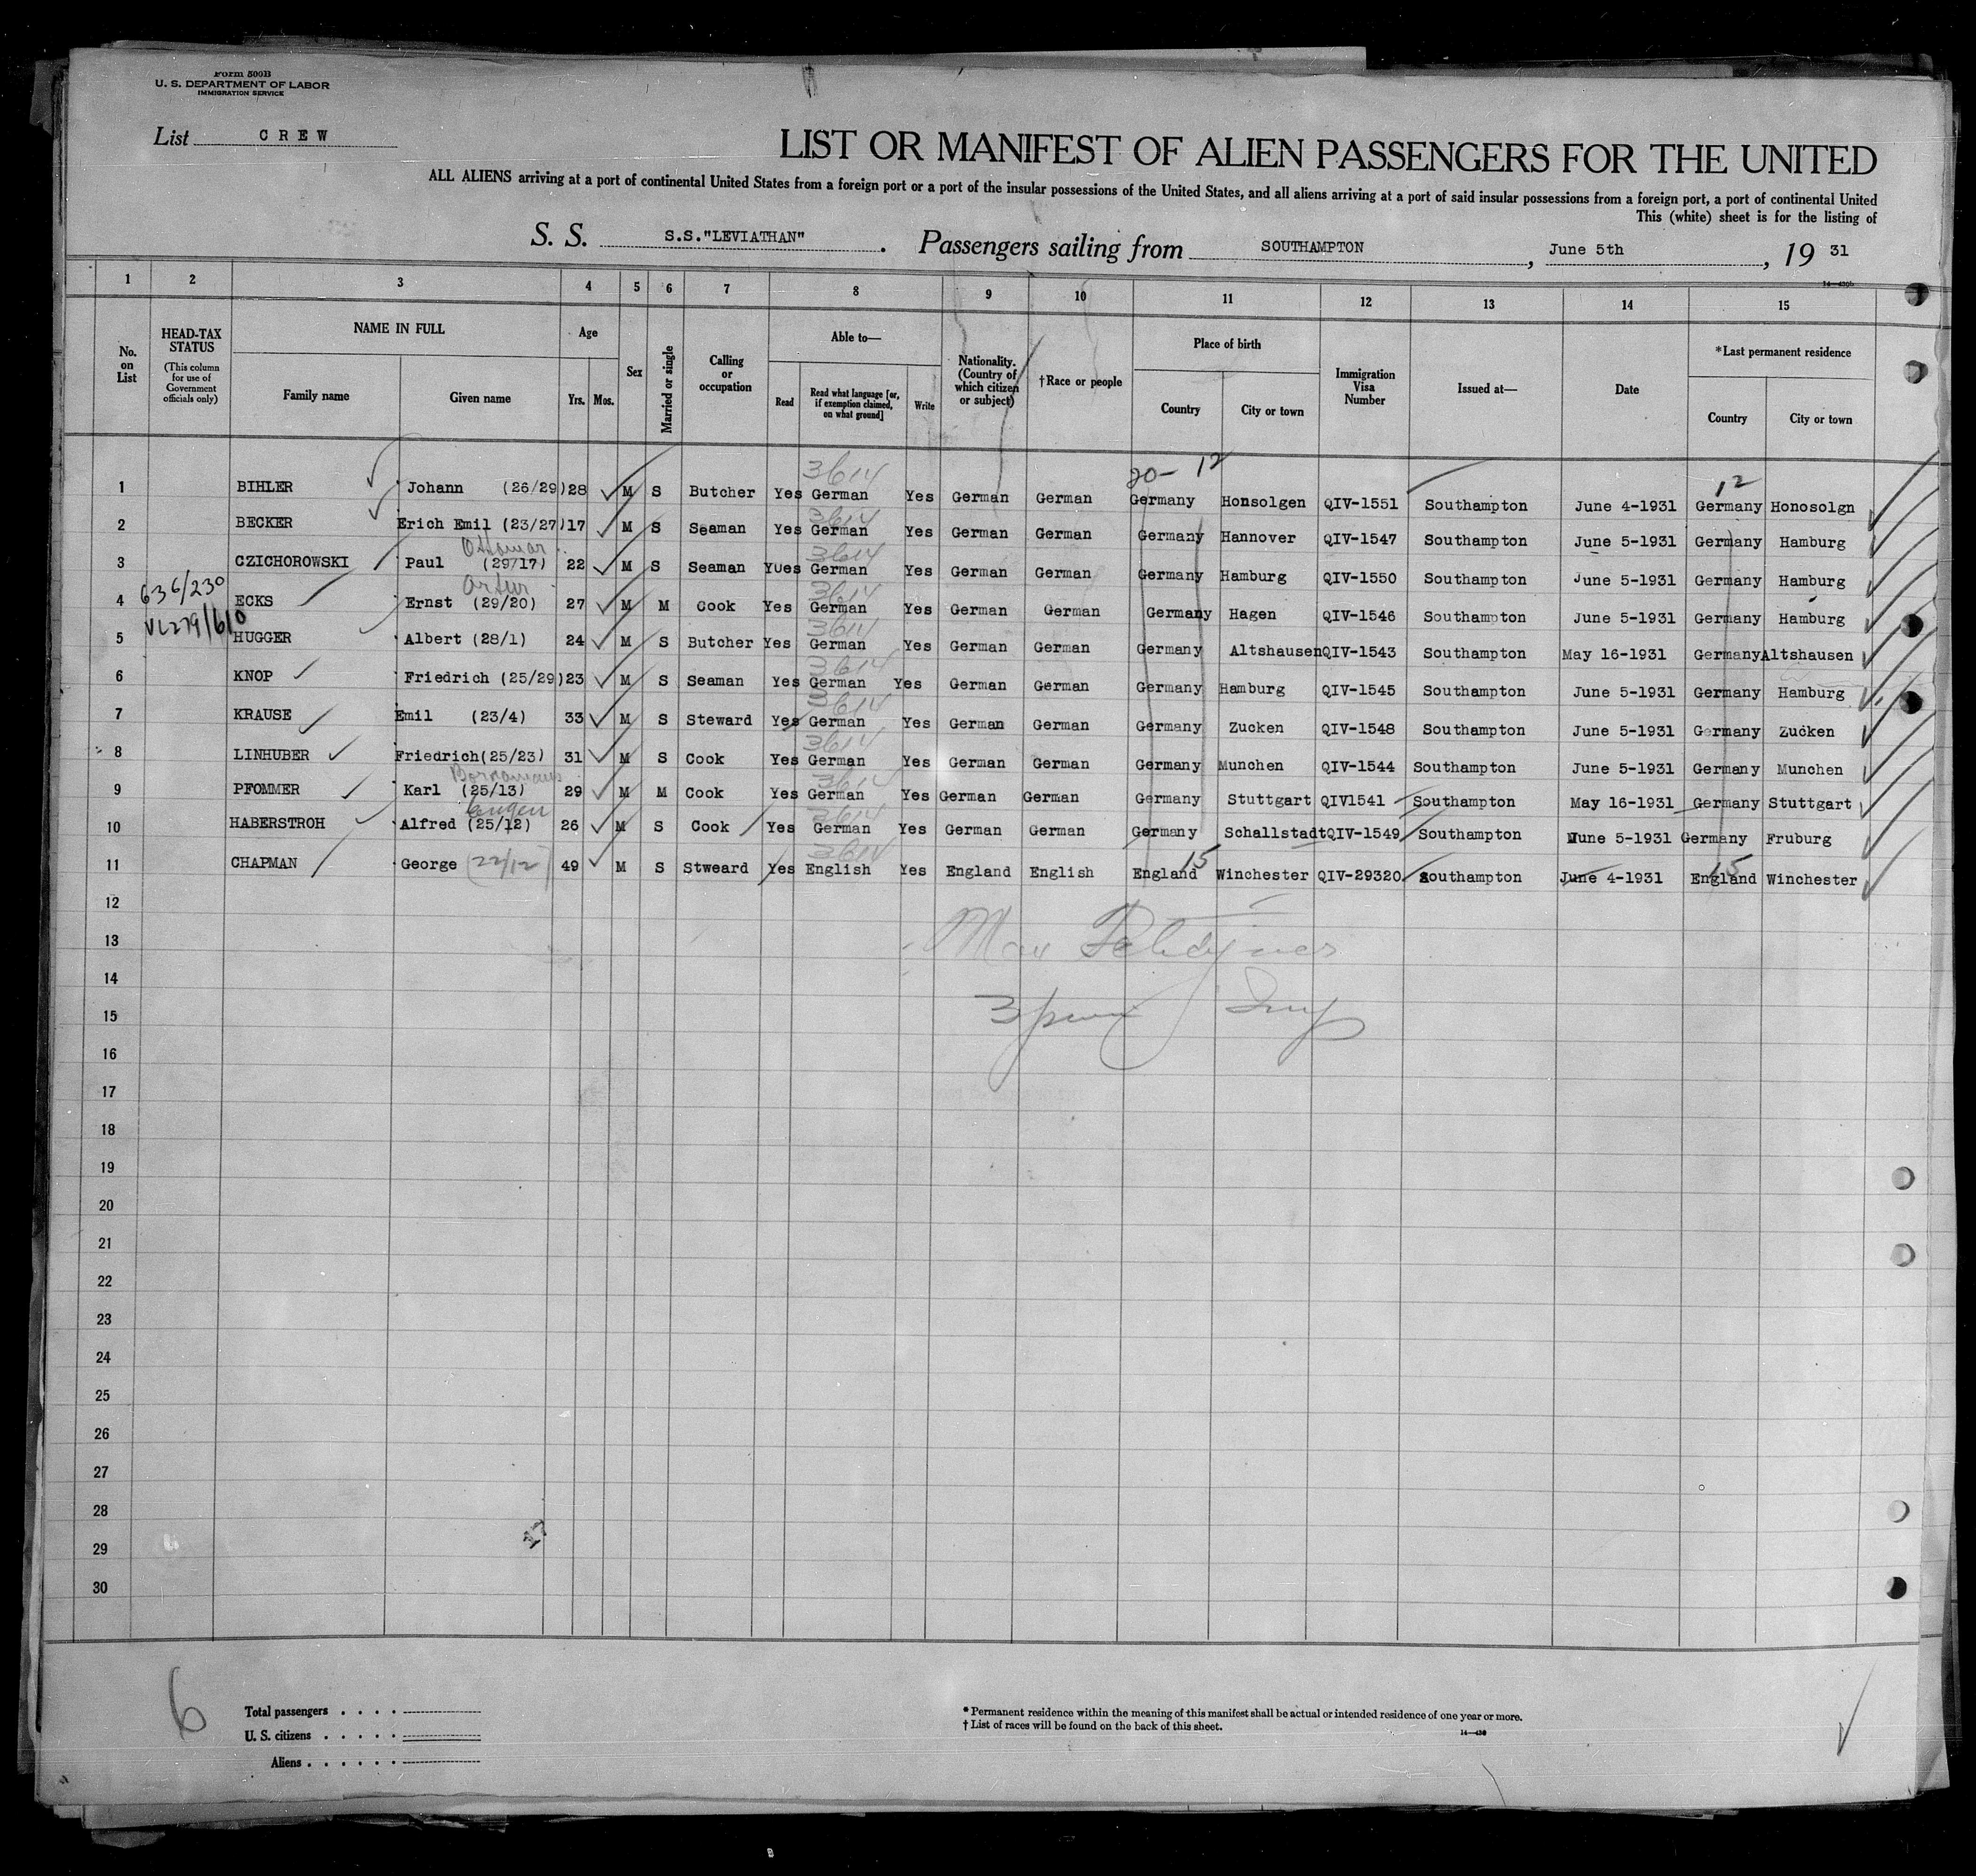 Form 500B
U. S. DEPARTMENT OF LABOR
IMMIGRATION SERVICE
List CREW
LIST OR MANIFEST OF ALIEN PASSENGERS FOR THE UNITED
ALL ALIENS arriving at a port of continental United States from a foreign port or a port of the insular possessions of the United States, and all aliens arriving at a port of said insular possessions from a foreign port, a port of continental United
This (white) sheet is for the listing of
S. S. S.S."LEVIATHAN". Passengers sailing from SOUTHAMPTON, June 5th, 19 31
1 2 3 4 5 6 7 8 9 10 11 12 13 14 15
No. on List
HEAD-TAX STATUS
(This column for use of Government officials only)
NAME IN FULL
Family name
Given name
Age
Yrs. Mos.
Sex
Married or single
Calling or occupation
Able to—
Read
Read what language [or, if exemption claimed, on what ground]
Write
Nationality. (Country of which citizen or subject)
†Race or people
Place of birth
Country
City or town
Immigration Visa Number
Issued at—
Date
*Last permanent residence
Country
City or town
20- 12 12
3614
1 BIHLER Johann (26/29) 28 M S Butcher Yes German Yes German German Germany Honsolgen QIV-1551 Southampton June 4-1931 Germany Honosolgn
3614
2 BECKER Erich Emil (23/27) 17 M S Seaman Yes German Yes German German Germany Hannover QIV-1547 Southampton June 5-1931 Germany Hamburg
Ottomar 3614
3 CZICHOROWSKI Paul (29/17) 22 M S Seaman Yues German Yes German German Germany Hamburg QIV-1550 Southampton June 5-1931 Germany Hamburg
636/230 Artur 3614
4 ECKS Ernst (29/20) 27 M M Cook Yes German Yes German German Germany Hagen QIV-1546 Southampton June 5-1931 Germany Hamburg
3614
5 HUGGER Albert (28/1) 24 M S Butcher Yes German Yes German German Germany Altshausen QIV-1543 Southampton May 16-1931 Germany Altshausen
3614
6 KNOP Friedrich (25/29) 23 M S Seaman Yes German Yes German German Germany Hamburg QIV-1545 Southampton June 5-1931 Germany Hamburg
3614
7 KRAUSE Emil (23/4) 33 M S Steward Yes German Yes German German Germany Zucken QIV-1548 Southampton June 5-1931 Germany Zucken
3614
8 LINHUBER Friedrich (25/23) 31 M S Cook Yes German Yes German German Germany Munchen QIV-1544 Southampton June 5-1931 Germany Munchen
3614
9 PFOMMER Karl (25/13) 29 M M Cook Yes German Yes German German Germany Stuttgart QIV1541 Southampton May 16-1931 Germany Stuttgart
Eugen 3614
10 HABERSTROH Alfred (25/12) 26 M S Cook Yes German Yes German German Germany Schallstadt QIV-1549 Southampton June 5-1931 Germany Fruburg
3614 15 15
11 CHAPMAN George (22/12) 49 M S Stweard Yes English Yes England English England Winchester QIV-29320 Southampton June 4-1931 England Winchester
12
13
14
15
16
17
18
19
20
21
22
23
24
25
26
27
28
29
30
6
Total passengers
U. S. citizens
Aliens
* Permanent residence within the meaning of this manifest shall be actual or intended residence of one year or more.
† List of races will be found on the back of this sheet.
14—430